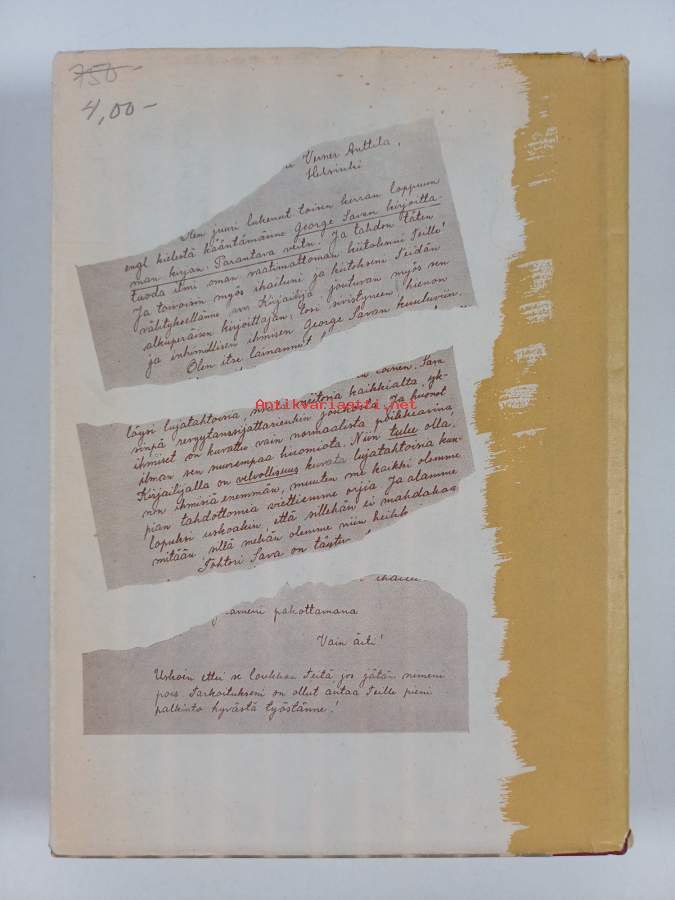 750-
4,00-
Verner Anttila,
Helsinki
Olen juuri lukenut toisen kerran loppuun
engl. kielestä kääntämänne George Savan kirjoitta-
man kirjan: Parantava veitsi. Ja tahdon täten
tuoda ilmi oman vaatimattoman kiitokseni Teille!
Ja toivoisin myös ihailuni ja kiitokseni Teidän
välityksellänne, arv. Kirjailija, joutuvan myös sen
alkuperäisen kirjoittajan, tosi sivistyneen, hienon
ja inhimillisen ihmisen George Savan kuuluviin.
Olen itse lainannut
toinen. Sava
täysi lujatahtoisia, kaikkialta, yk-
sinpä revyytanssijattarienkin joukosta. Ja huonot
ihmiset on kuvattu vain normaalista poikkeavina
ilman sen suurempaa huomiota. Niin tulee olla.
Kirjailijalla on velvollisuus kuvata lujatahtoisia kun-
non ihmisiä enemmän, muuten me kaikki olemme
pian tahdottomia viettiemme orjia ja alamme
lopuksi uskoakin, että sillehän ei mahdakaan
mitään, sillä mehän olemme niin heikko
Tohtori Sava on täysin
pakottamana
Vain äiti!
Uskoin ettei se loukkaa Teitä, jos jätän nimeni
pois. Tarkoitukseni on ollut antaa Teille pieni
palkinto hyvästä työstänne!
Antikvariaatti.net